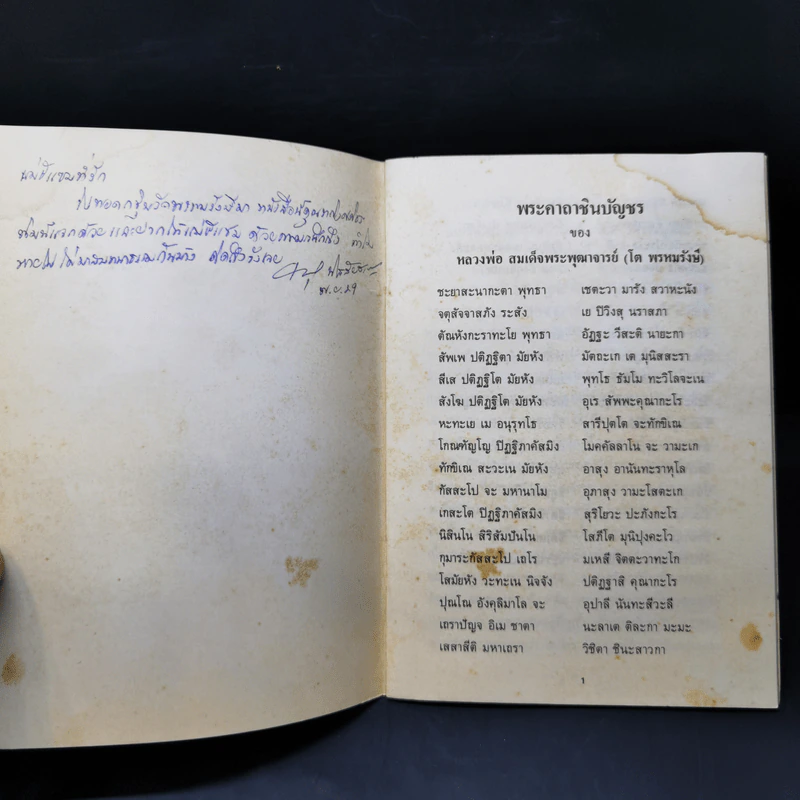 แม่ชีแขมที่รัก
ไปทอดกฐินวัด
ด้วย และฝากให้แม่ชีแขม ด้วยความ
พระคาถาชินบัญชร
ของ
หลวงพ่อ สมเด็จพระพุฒาจารย์ (โต พรหมรังษี)
ชะยาสะนากะตา พุทธา เชตะวา มารัง สวาหะนัง
จตุสัจจาสภัง ระสัง เย ปิวิงสุ นราสภา
ตัณหังกะราทะโย พุทธา อัฏฐะ วีสะติ นายะกา
สัพเพ ปติฏฐิตา มัยหัง มัตถะเก เต มุนิสสะรา
สีเส ปติฏฐิโต มัยหัง พุทโธ ธัมโม ทะวิโลจะเน
สังโฆ ปติฏฐิโต มัยหัง อุเร สัพพะคุณากะโร
หะทะเย เม อนุรุทโธ สารีปุตโต จะทักขิเณ
โกณฑัญโญ ปิฏฐิภาคัสมิง โมคคัลลาโน จะ วามะเก
ทักขิเณ สะวะเน มัยหัง อาสุง อานันทะราหุโล
กัสสะโป จะ มหานาโม อุภาสุง วามะโสตะเก
เกสะโต ปิฏฐิภาคัสมิง สุริโยวะ ปะภังกะโร
นิสินโน สิริสัมปันโน โสภีโต มุนิปุงคะโว
กุมาระกัสสะโป เถโร มเหสี จิตตะวาทะโก
โสมัยหัง วะทะเน นิจจัง ปติฏฐาสิ คุณากะโร
ปุณโณ อังคุลิมาโล จะ อุปาลี นันทะสีวะลี
เถราปัญจ อิเม ชาตา นะลาเต ติละกา มะมะ
เสสาสีติ มหาเถรา วิชิตา ชินะสาวกา
1